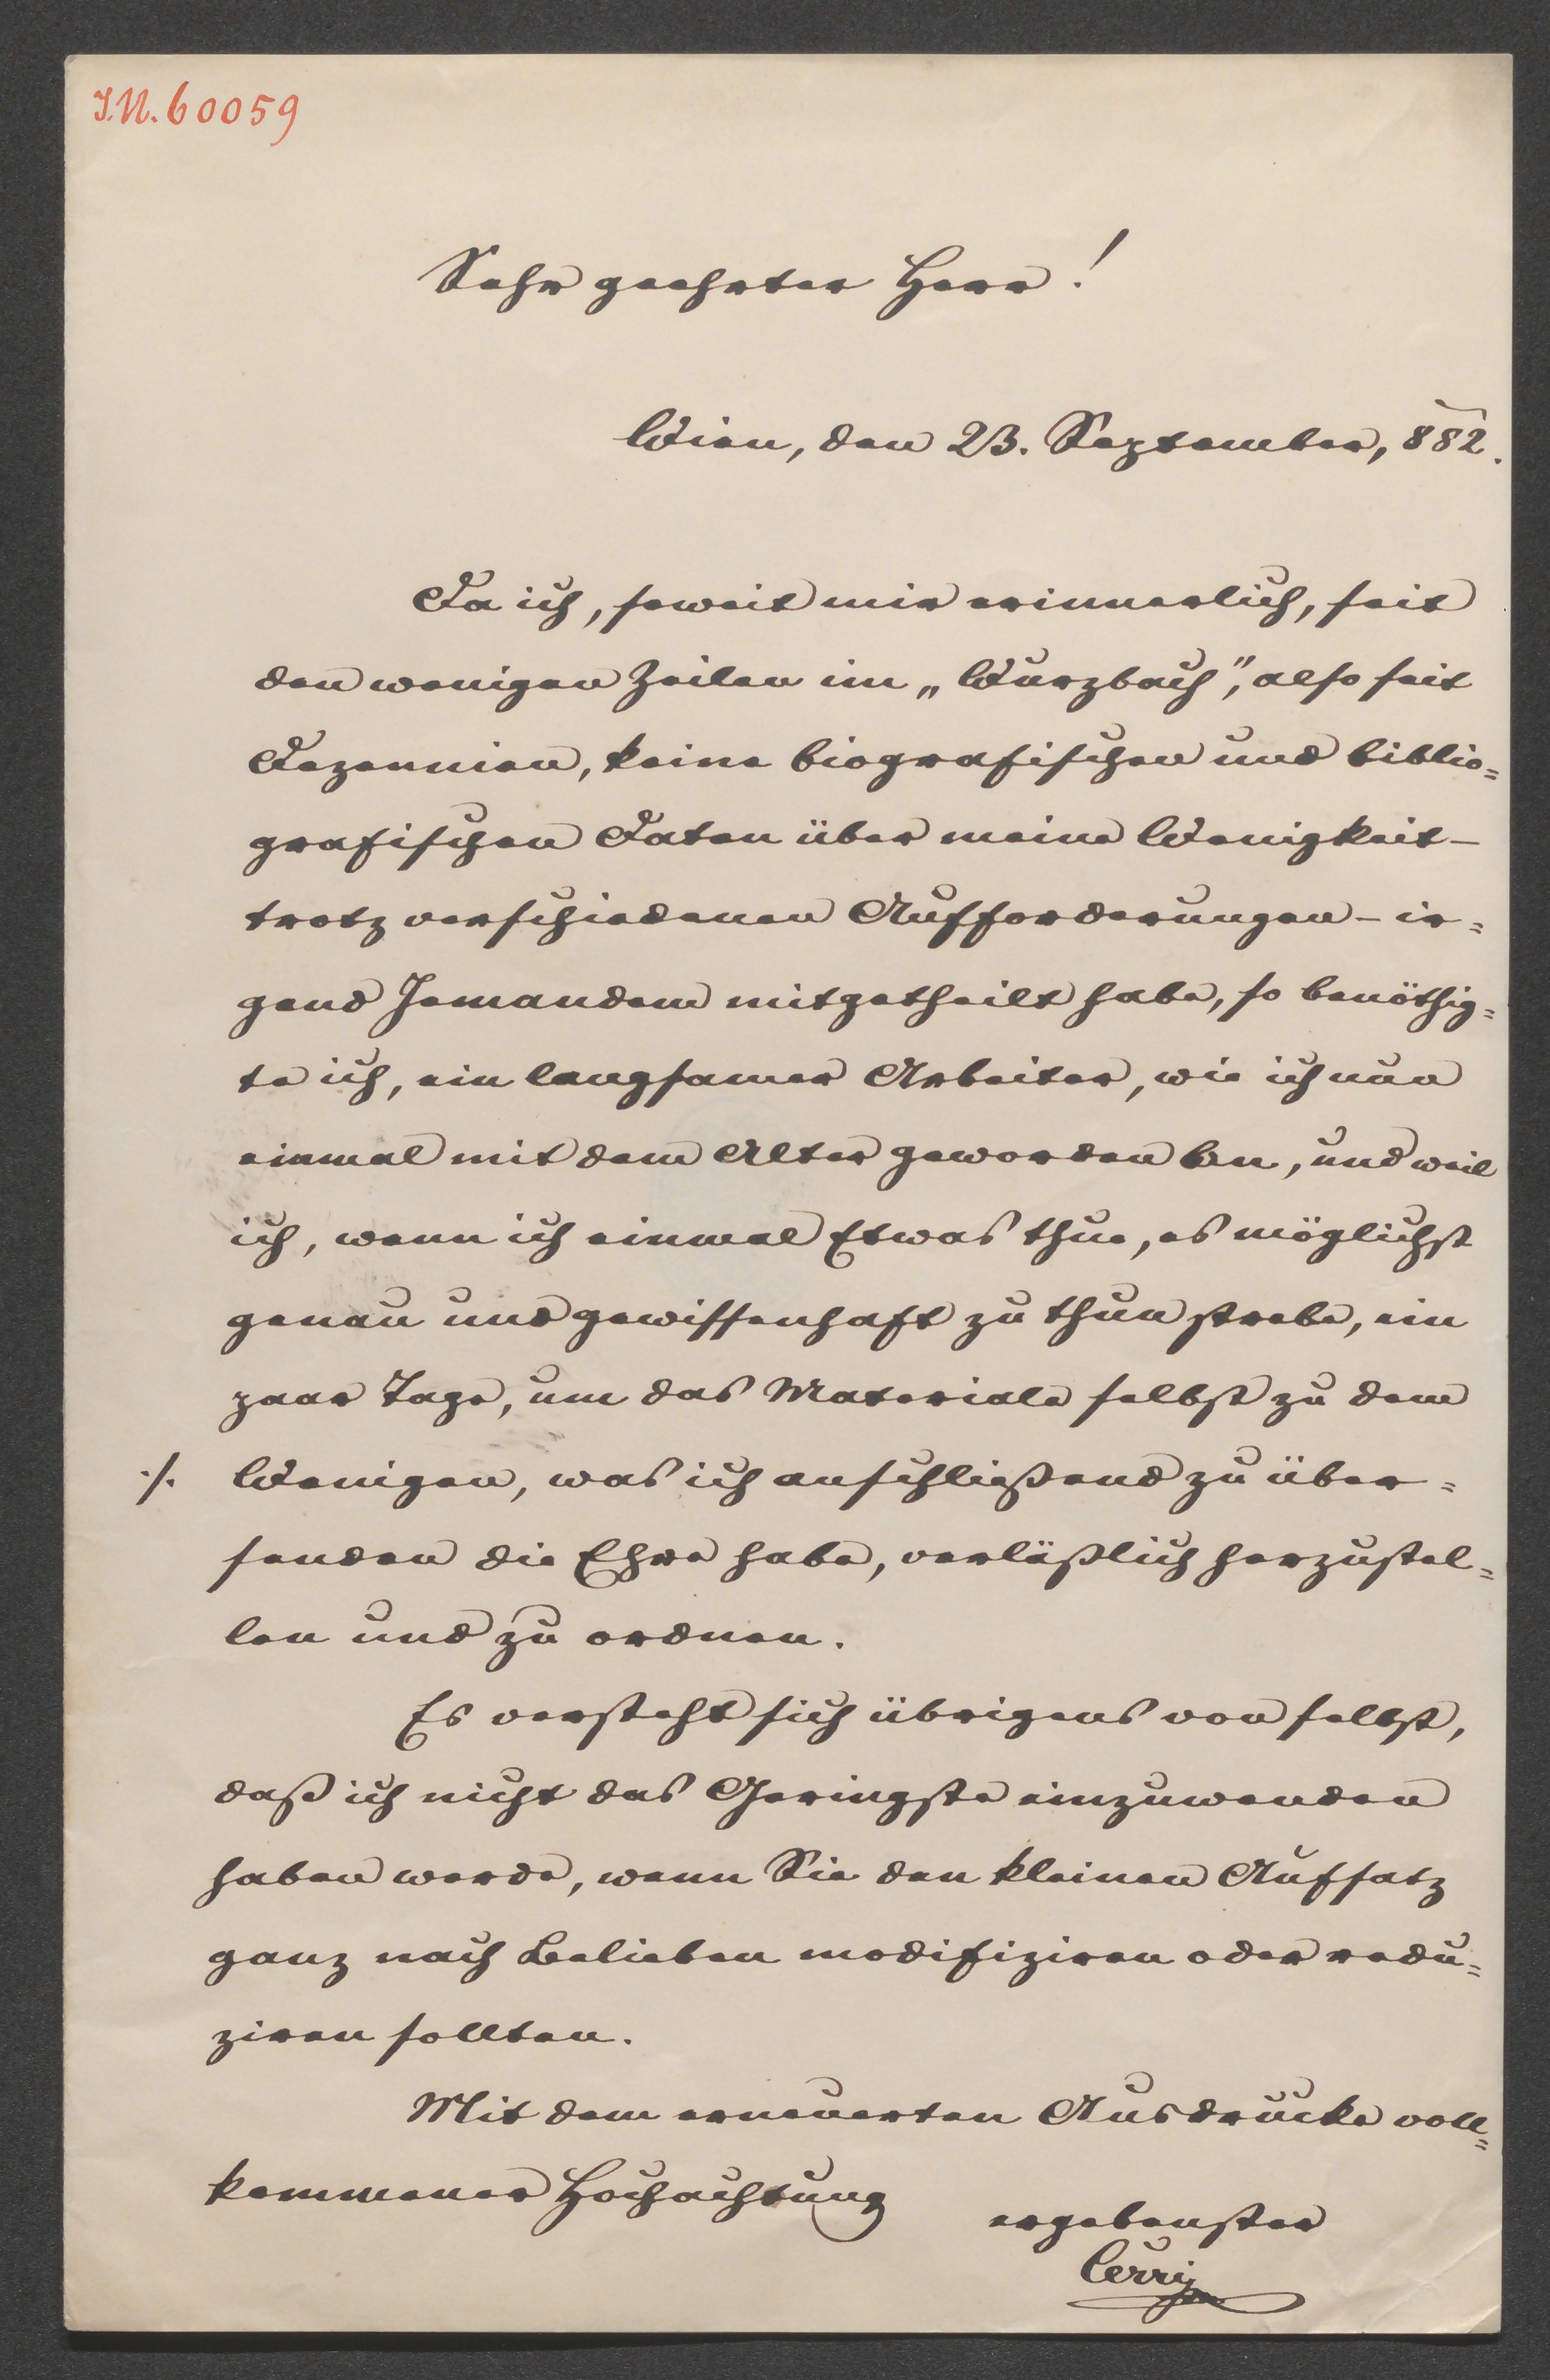 I.N. 60059
Sehr geehrter Herr!
Wien, den 23. September, 882.
Da ich, soweit mir erinnerlich, seit
den wenigen Zeilen im „Wurzbach", also seit
Dezennien, keine biografischen und biblio=
grafischen Daten über meine Wenigkeit –
trotz verschiedenen Aufforderungen – ir=
gend Jemandem mitgetheilt habe, so benöthig=
te ich, ein langsamer Arbeiter, wie ich nun
einmal mit dem Alter geworden bin, und weil
ich, wenn ich einmal Etwas thue, es möglichst
genau und gewissenhaft zu thun strebe, ein
paar Tage, um das Materiale selbst zu dem
./. Wenigen, was ich anschließend zu über=
senden die Ehre habe, verläßlich herzustel=
len und zu ordnen.
Es versteht sich übrigens von selbst,
daß ich nicht das Geringste einzuwenden
haben werde, wenn Sie den kleinen Aufsatz
ganz nach Belieben modifiziren oder redu=
ziren sollten.
Mit dem erneuerten Ausdrucke voll=
kommener Hochachtung
ergebenster
Cerri